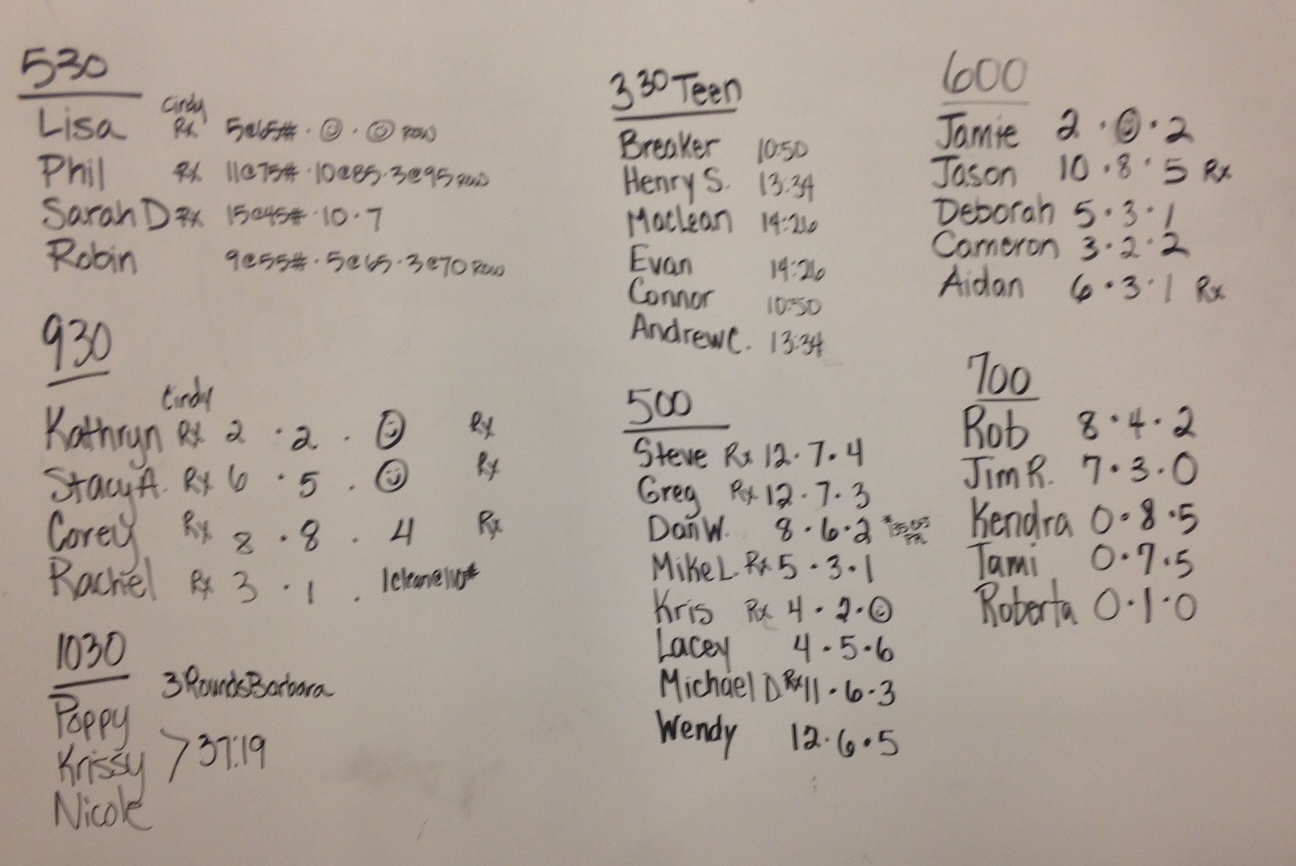 530
Cindy
Lisa Rx 5@65# · ☺ · ☺ Row
Phil Rx 11@75# · 10@85 · 3@95 Row
Sarah D Rx 15@45# · 10 · 7
Robin 9@55# · 5@65 · 3@70 Row
930
Cindy
Kathryn Rx 2 · 2 · ☺ Rx
Stacy A. Rx 6 · 5 · ☺ Rx
Corey Rx 8 · 8 · 4 Rx
Rachel Rx 3 · 1 · 1clean@110#
1030
3 Rounds Barbara
Poppy
Krissy > 37:19
Nicole
330 Teen
Breaker 10:50
Henry S. 13:34
MacLean 14:26
Evan 14:26
Connor 10:50
Andrew C. 13:34
500
Steve Rx 12 · 7 · 4
Greg Rx 12 · 7 · 3
Dan W. 8 · 6 · 2
Mike L. Rx 5 · 3 · 1
Kris Rx 4 · 2 · ☺
Lacey 4 · 5 · 6
Michael D. Rx 11 · 6 · 3
Wendy 12 · 6 · 5
600
Jamie 2 · ☺ · 2
Jason 10 · 8 · 5 Rx
Deborah 5 · 3 · 1
Cameron 3 · 2 · 2
Aidan 6 · 3 · 1 Rx
700
Rob 8 · 4 · 2
Jim R. 7 · 3 · 0
Kendra 0 · 8 · 5
Tami 0 · 7 · 5
Roberta 0 · 1 · 0